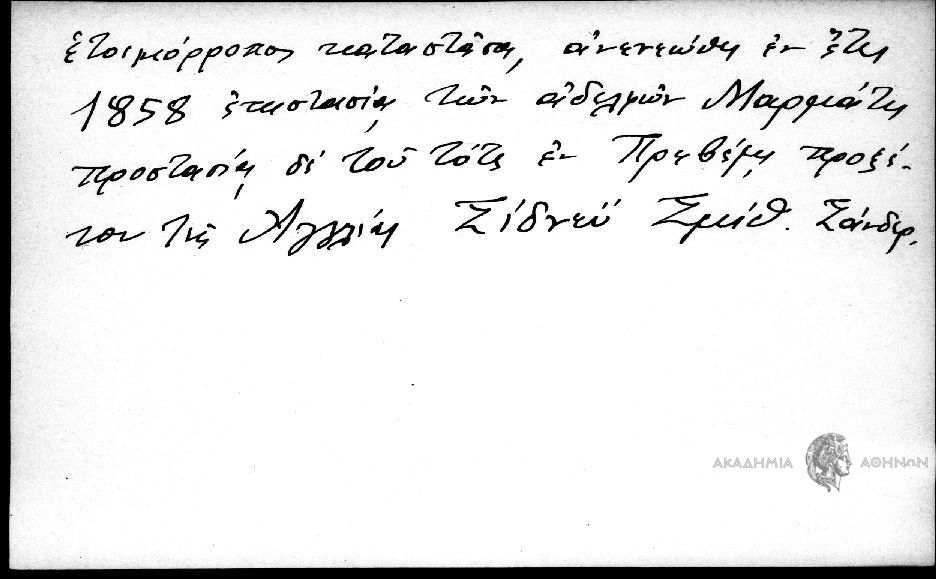 ἑτοιμόρροπος καταστᾶσα, ἀνενεώθη ἐν ἔτει
1858 ἐπιστασίᾳ τῶν ἀδελφῶν
προστασίᾳ δὲ τοῦ τότε ἐν Πρεβέζῃ προξέ-
νου τῆς Ἀγγλίας Σίδνεϋ Σμίθ Σάνδερ.
ΑΚΑΔΗΜΙΑ ΑΘΗΝΩΝ